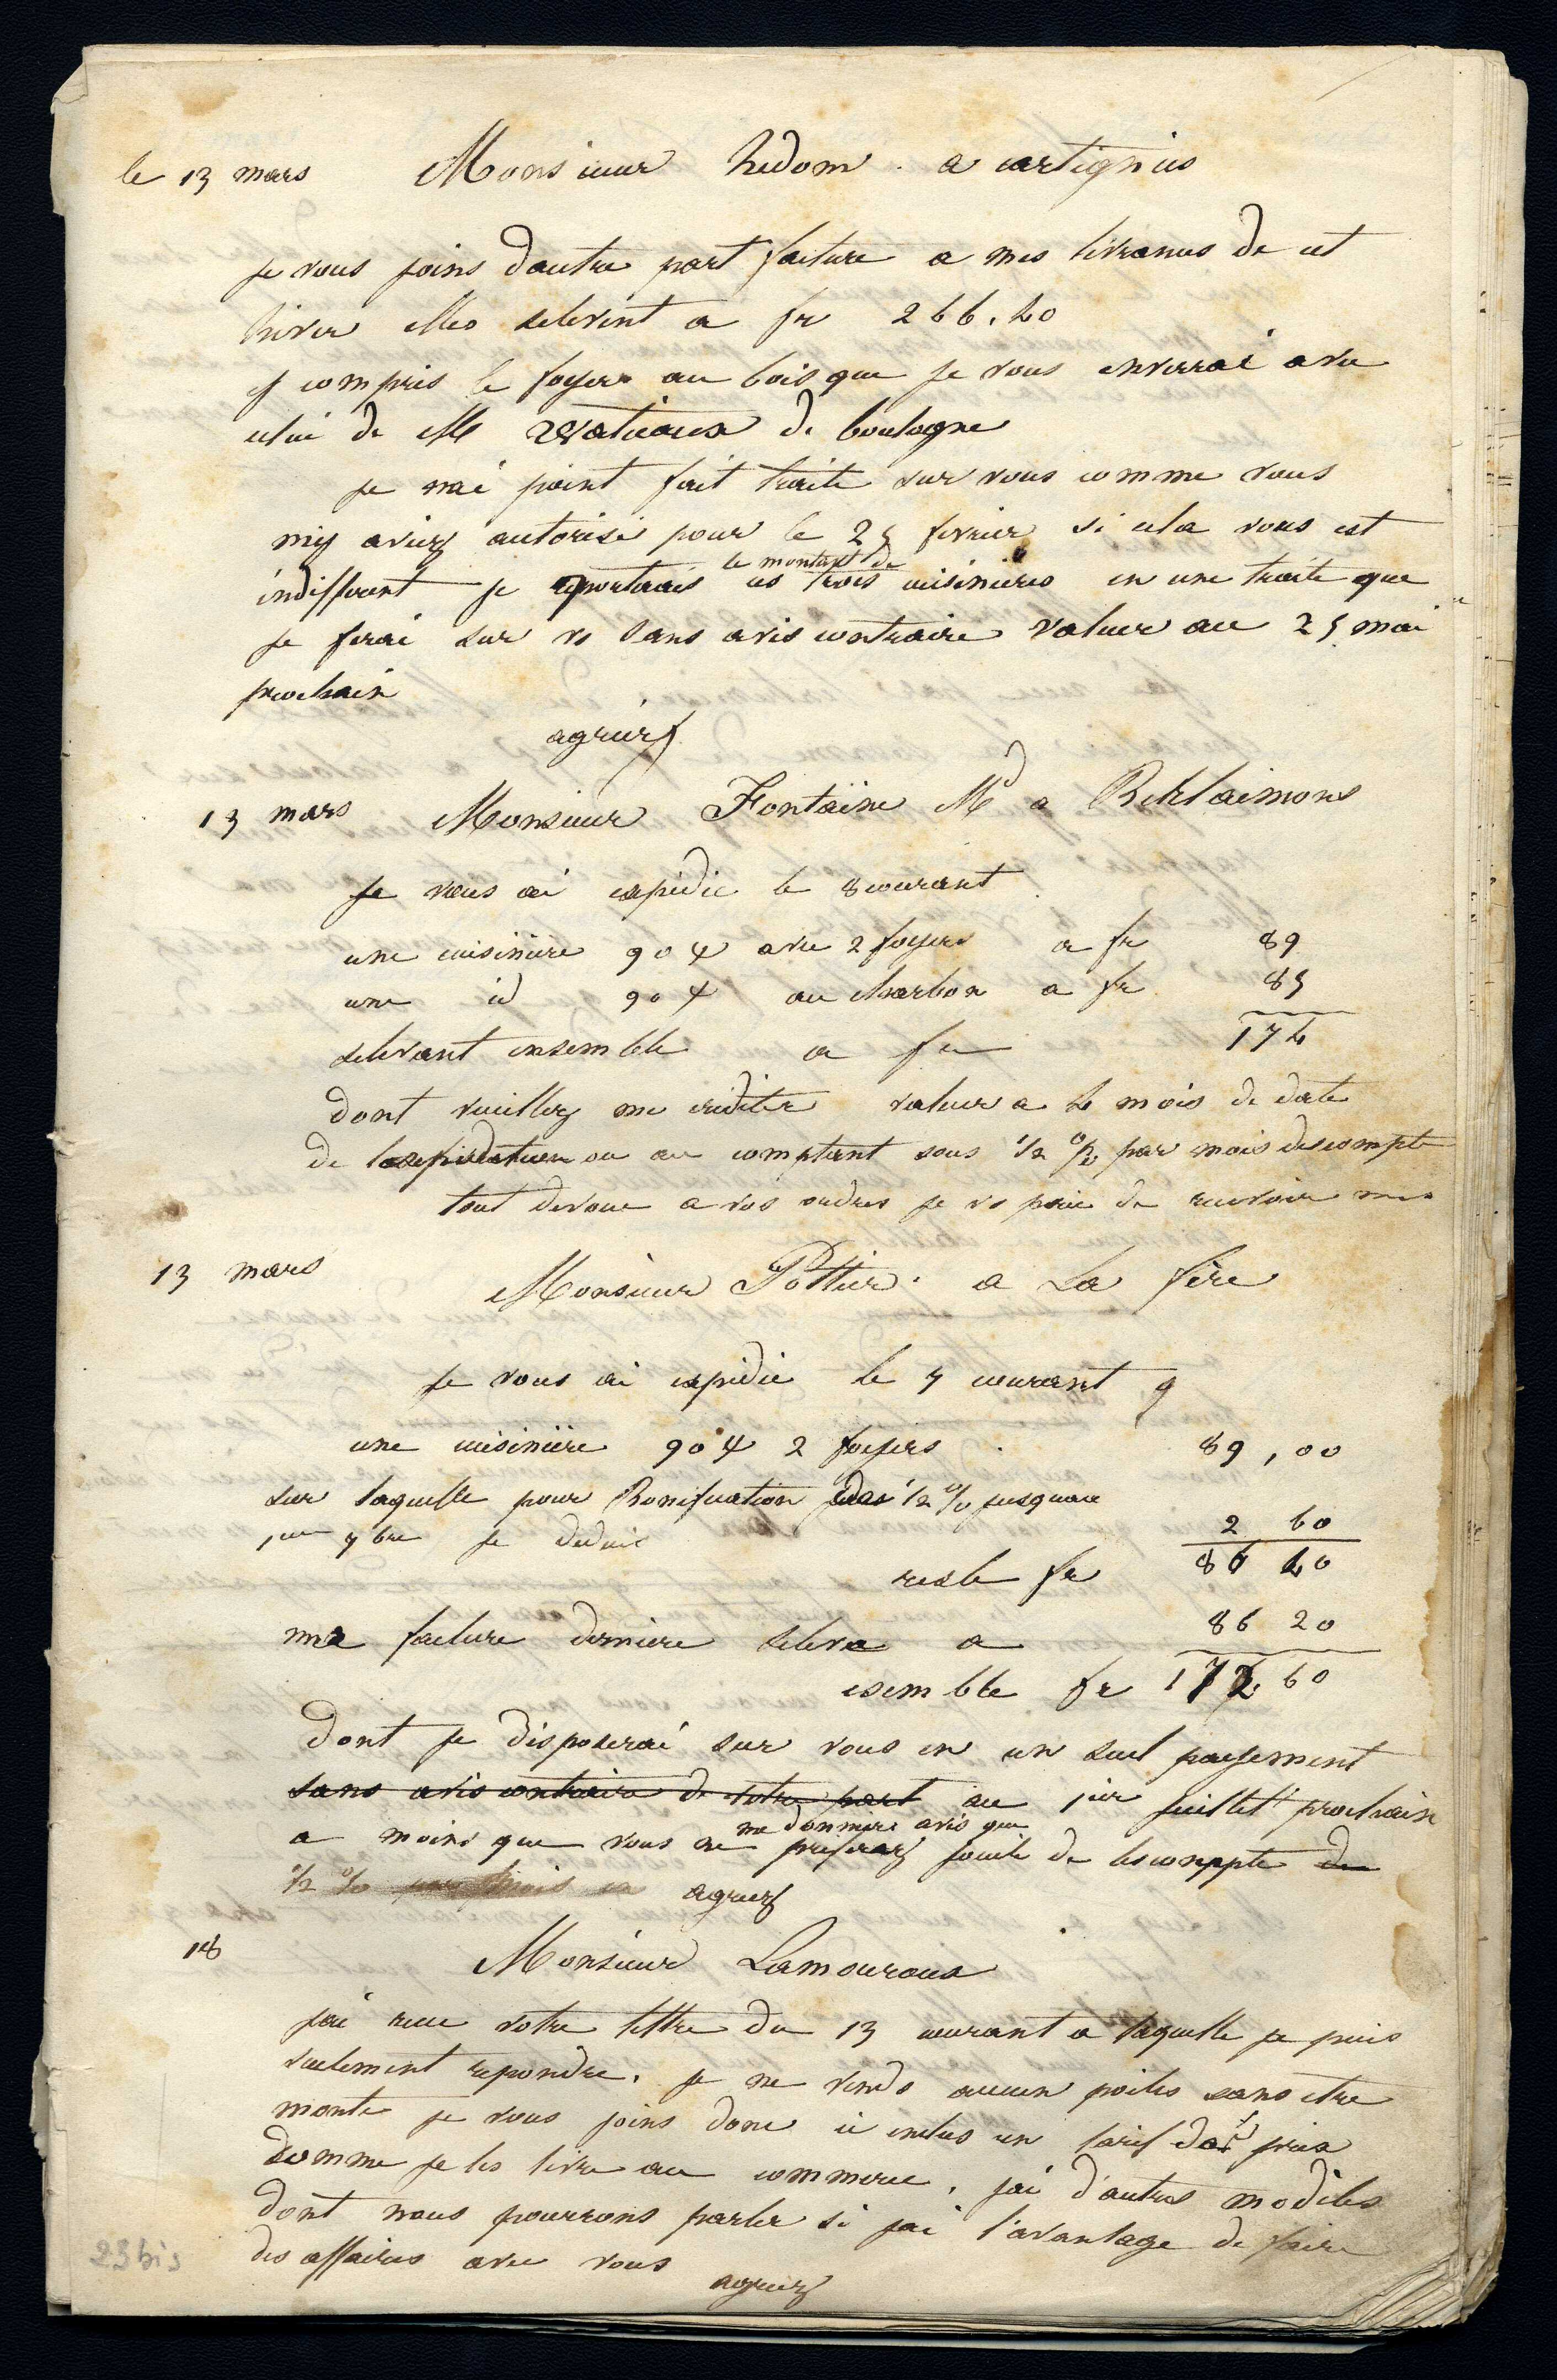 le 13 mars Monsieur hedom a cartignies
je vous joins dautre part facture a mes livranes de cet
hiver elles selevent a fr 266.40
y compris le foyer au bois que je vous enverrai avec
celui de M Watiaux de boulogne
je nai point fait traite sur vous comme vous
my aviez autorisé pour le 25 fevrier si cela vous est
le montant de
indifferent je reporterais ces trois cuisinieres en une traite que
je ferai sur vs sans avis contraire valeur au 25 mai
prochain
agreez
13 mars Monsieur Fontaine Md a Berlaimons
Je vous ai expedie le 8 courant
une cuisinière 904 avec 2 foyers a fr 89
une id 904 au charbon a fr 85
selevant ensemble a fr 174
dont veuillez me crediter valeur a 4 mois de date
de lexpedition ou au comptant sous 1/2 % par mois descompte
tout devoue a vos ordres je vs prie de recevoir mes
13 mars Monsieur Pottier a La fère
Je vous ai expedie le 7 courant
une cuisinière 904 2 foyers 89,00
sur laquelle pour Bonification 1/2 % jusquau
1er 7bre je deduis 2 60
reste fr 86 40
ma facture derniere seleva a 86 20
esemble fr 172 60
Dont je disposerai sur vous en un seul payement
sans avis contraire de votre part au 1er juillet prochain
me donniez avis que
a moins que vous ne preferez jouir de lescompte de
1/2 % par mois agreez
18 Monsieur Lamouroux
jai recu votre lettre du 13 courant a laquelle je puis
seulement repondre. je ne vends aucun poiles sans etre
monte je vous joins donc ci inclus un tarif des prix
comme je les livre au commerce, jai d'autres modèles
dont nous pourrons parler si jai l'avantage de faire
des affaires avec vous
agreez
23 bis